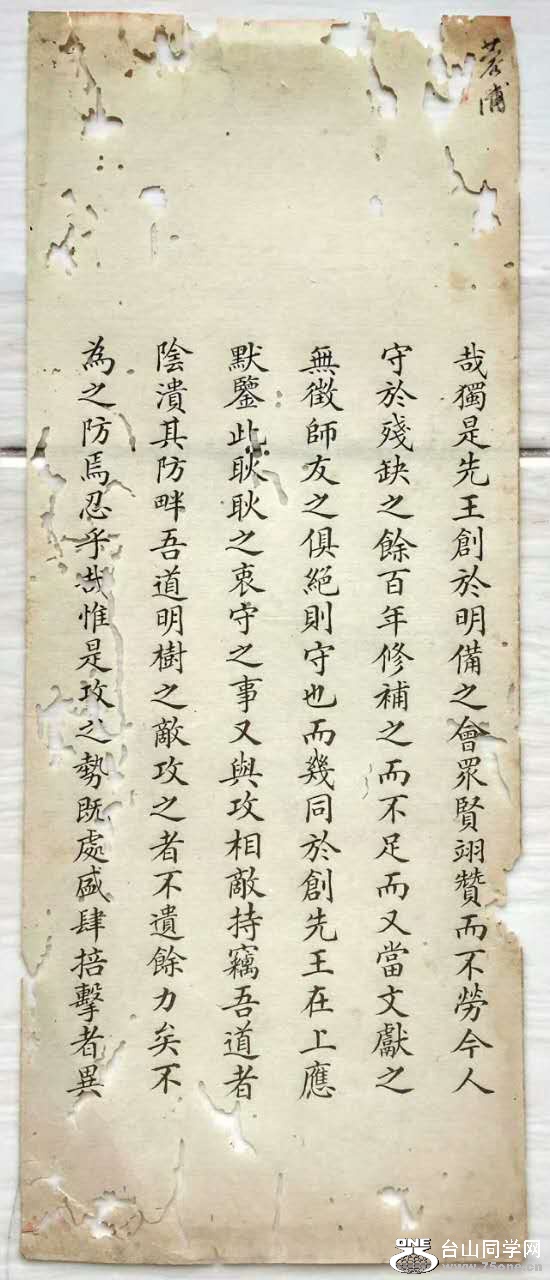 哉獨是先王創於明備之會眾賢翊贊而不勞今人
守於殘缺之餘百年修補之而不足而又當文獻之
無徵師友之俱絕則守也而幾同於創先王在上應
默鑒此耿耿之衷守之事又與攻相敵持竊吾道者
陰潰其防畔吾道明樹之敵攻之者不遺餘力矣不
為之防焉忍乎哉惟是攻之勢既處盛肆掊擊者異
ONE
台山同学网
www.75one.cn